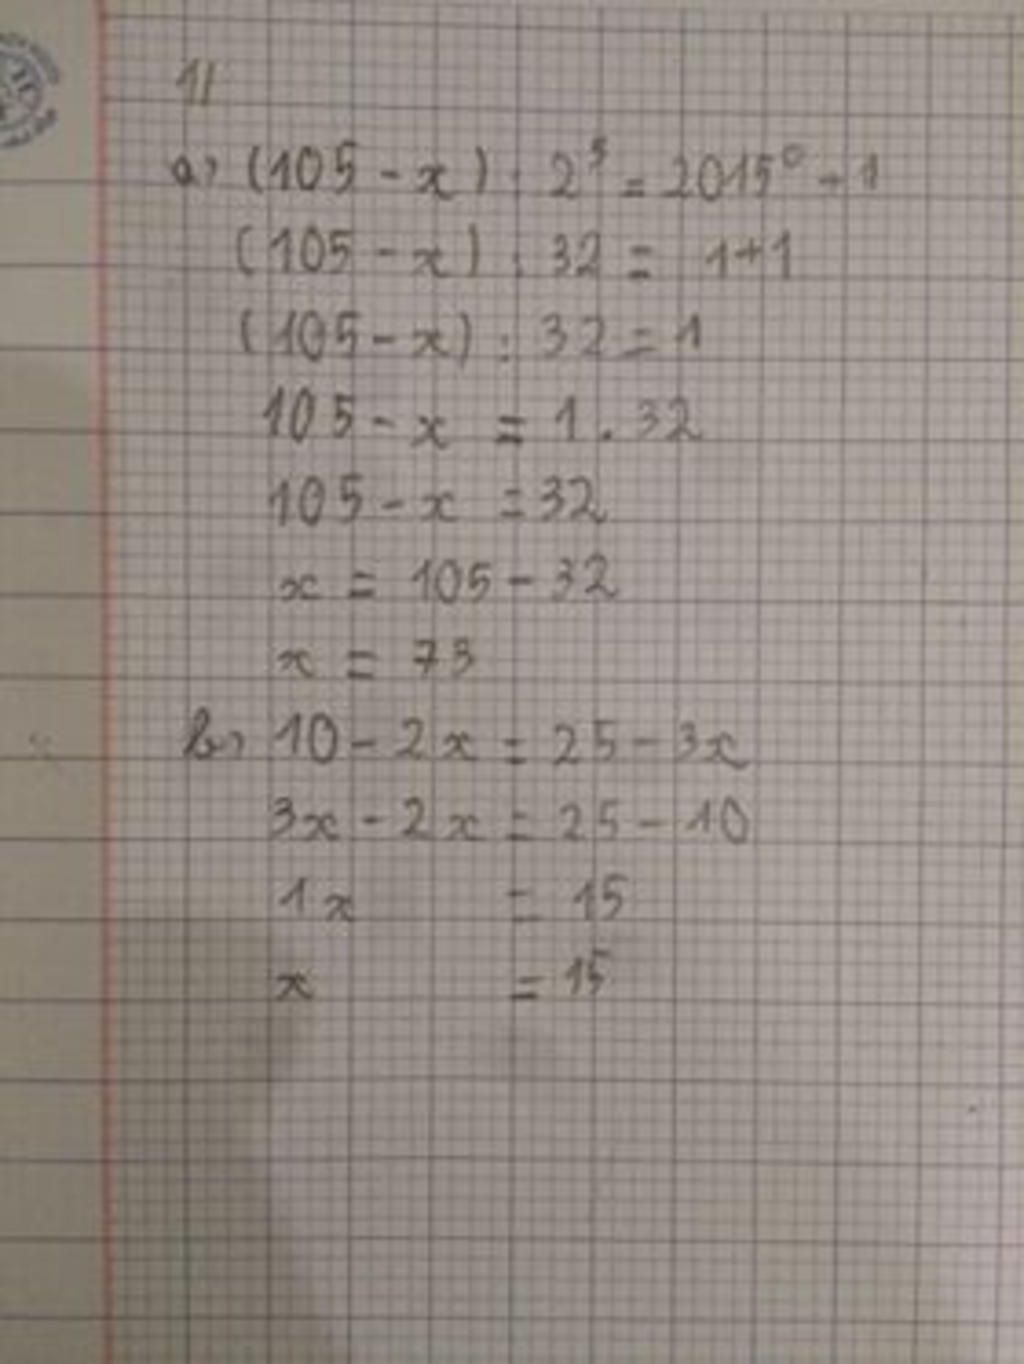 1/
a) (105 - x) : 2⁵ = 2015⁰ + 1
(105 - x) : 32 = 1+1
(105 - x) : 32 = 1
105 - x = 1 . 32
105 - x = 32
x = 105 - 32
x = 73
b) 10 - 2x = 25 - 3x
3x - 2x = 25 - 10
1x = 15
x = 15